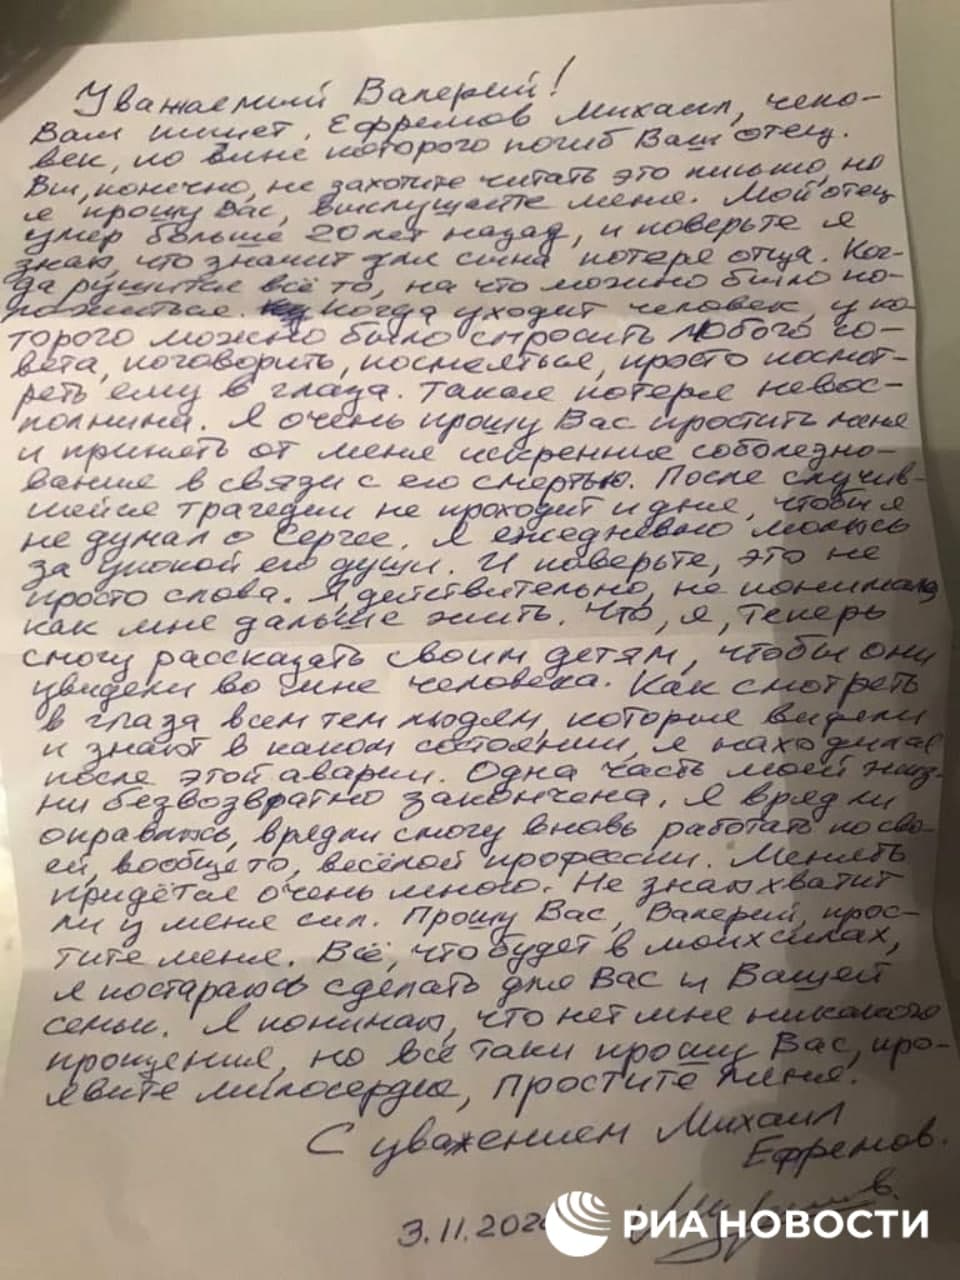 Уважаемый Валерий!
Вам пишет, Ефремов Михаил, чело-
век, по вине которого погиб Ваш отец.
Вы, конечно, не захотите читать это письмо, но
я прошу Вас, выслушайте меня. Мой отец
умер больше 20 лет назад, и поверьте я
знаю, что значит для сына потеря отца. Ког-
да рушится всё то, на что можно было по-
ложиться. Когда уходит человек, у ко
торого можно было спросить любого со-
вета, поговорить, посмеяться, просто посмот-
реть ему в глаза. Такая потеря невос-
полнима. Я очень прошу Вас простить меня
и принять от меня искренние соболезно-
вания в связи с его смертью. После случив-
шейся трагедии не проходит и дня, чтобы я
не думал о Сергее. Я ежедневно молюсь
за упокой его души. И поверьте, это не
просто слова. Я, действительно, не понимаю,
как мне дальше жить. Что, я, теперь
смогу рассказать своим детям, чтобы они
увидели во мне человека. Как смотреть
в глаза всем тем людям, которые видели
и знают в каком состоянии, я находился
после этой аварии. Одна часть моей жиз-
ни безвозвратно закончена. Я вряд ли
оправлюсь, вряд ли смогу вновь работать по сво-
ей, вообще то, весёлой профессии. Менять
придётся очень много. Не знаю хватит
ли у меня сил. Прошу Вас, Валерий, прос-
тите меня. Всё, что будет в моих силах,
я постараюсь сделать для Вас и Вашей
семьи. Я понимаю, что нет мне никакого
прощения, но всё таки прошу Вас, про-
явите милосердие, простите меня.
С уважением Михаил
Ефремов.
3.11.2020
РИА НОВОСТИ